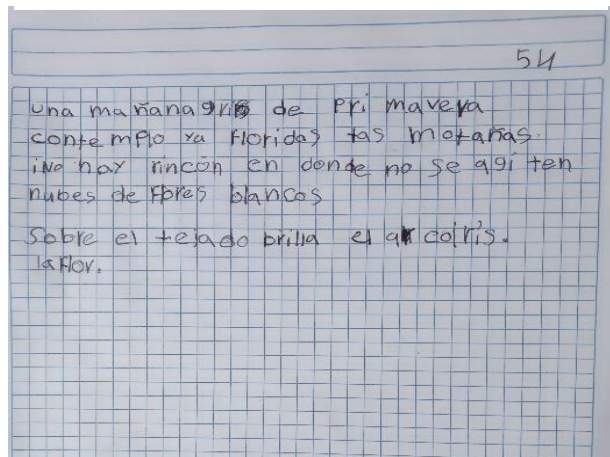 54
una mañana gris de Pri mavera
conte mplo ya Floridas tas motañas.
¡No hay rincón en donde no se agi ten
nubes de Flores blancos
Sobre el tejado brilla el ar coiris.
la Flor.